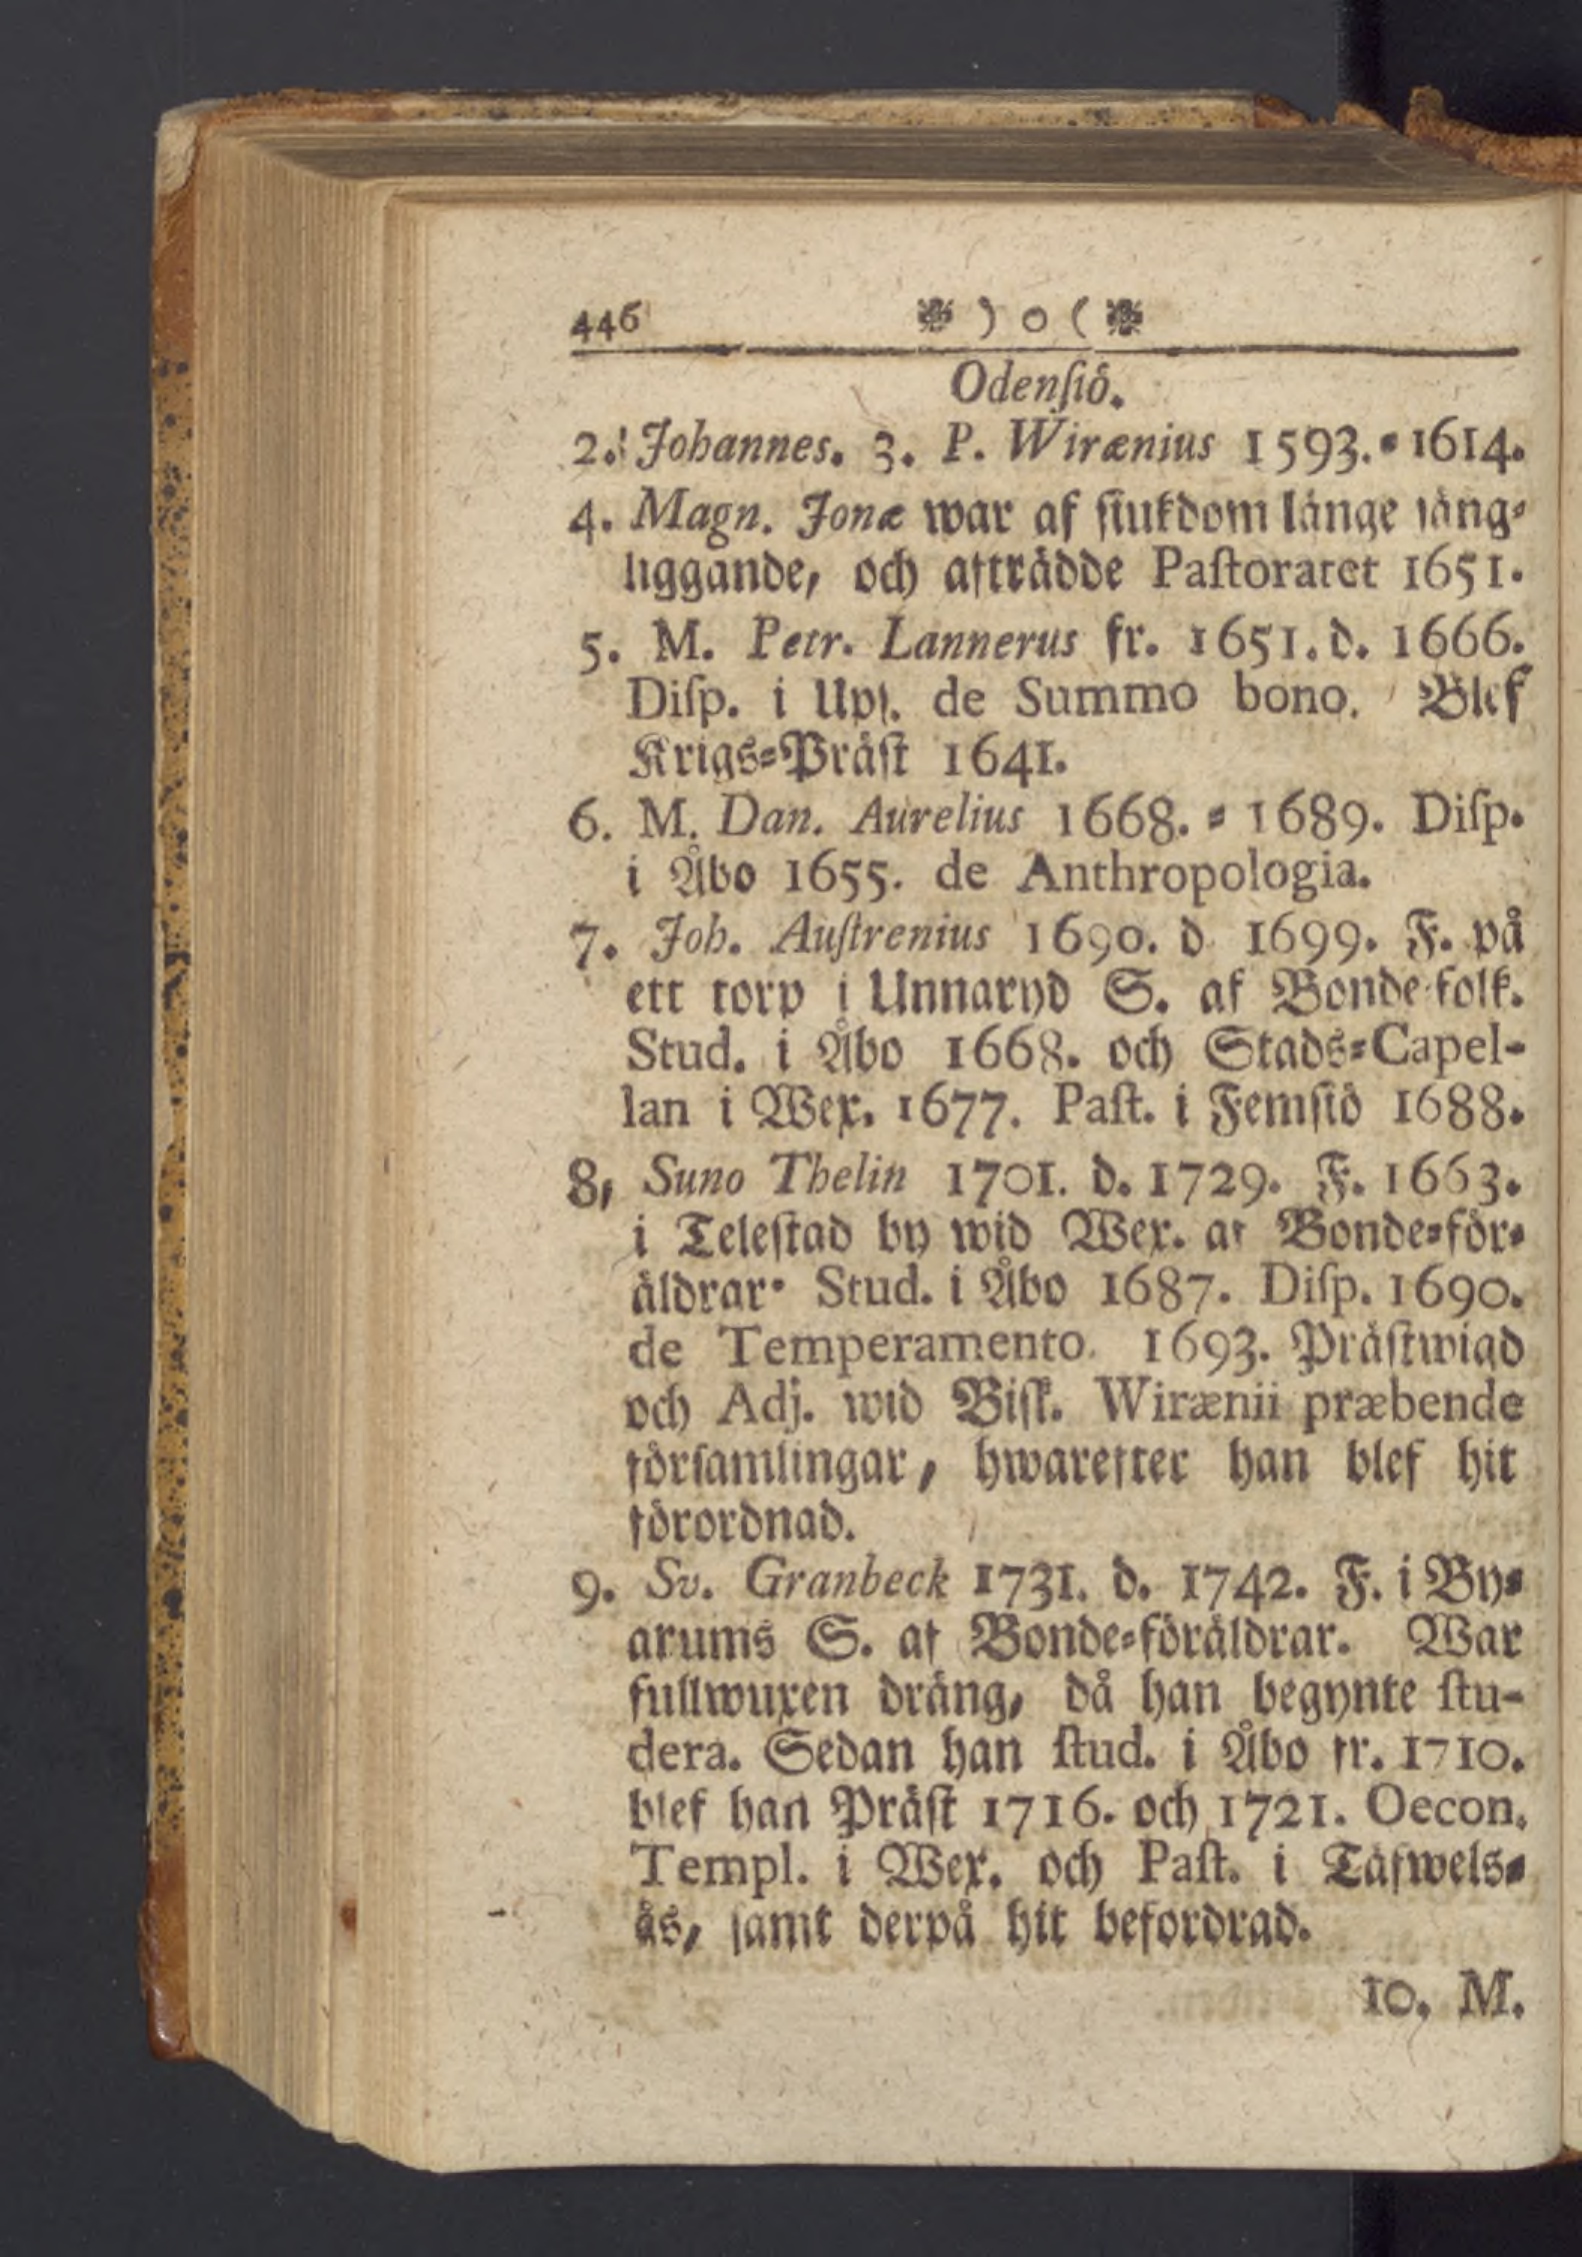 446 ❦ ) o ( ❦
Odensiö.
2. Johannes. 3. P. Wirænius 1593. = 1614.
4. Magn. Jonæ war af siukdom länge säng=
liggande, och afträdde Pastoratet 1651.
5. M. Petr. Lannerus fr. 1651. d. 1666.
Disp. i Ups. de Summo bono. Blef
Krigs=Präst 1641.
6. M. Dan. Aurelius 1668. = 1689. Disp.
i Åbo 1655. de Anthropologia.
7. Joh. Austrenius 1690. d 1699. F. på
ett torp i Unnaryd S. af Bonde folk.
Stud. i Åbo 1668. och Stads=Capel-
lan i Wex. 1677. Past. i Femsiö 1688.
8, Suno Thelin 1701. d. 1729. F. 1663.
i Telestad by wid Wex. af Bonde=för=
äldrar. Stud. i Åbo 1687. Disp. 1690.
de Temperamento. 1693. Prästwigd
och Adj. wid Bisk. Wirænii præbende
församlingar, hwarefter han blef hit
förordnad.
9. Sv. Granbeck 1731. d. 1742. F. i By=
arums S. af Bonde=föräldrar. War
fullwuxen dräng, då han begynte stu-
dera. Sedan han stud. i Åbo fr. 1710.
blef han Präst 1716. och 1721. Oecon.
Templ. i Wex. och Past. i Täfwels=
ås, samt derpå hit befordrad.
10. M.